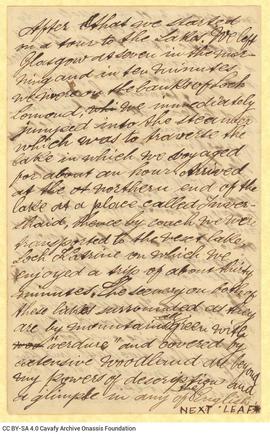 After that we started
on a tour to the Lakes. We left
Glasgow at seven in the mor-
ning and in ten minutes
we were on the banks of Loch
Lomond, we immediately
jumped into the steamer
which was to traverse the
lake in which we voyaged
for about an hour. Arrived
at the northern end of the
lake at a place called Inver-
snaid, thence by coach we were
transported to the next lake,
Loch Katrine on which we
enjoyed a trip of about thirty
minutes. The scenery on both of
these lakes surrounded as they
are by mountains green with
verdure" and covered by
extensive woodland are beyond
my powers of description and
a glimpse in any of English
NEXT LEAF
CC BY-SA 4.0 Cavafy Archive Onassis Foundation